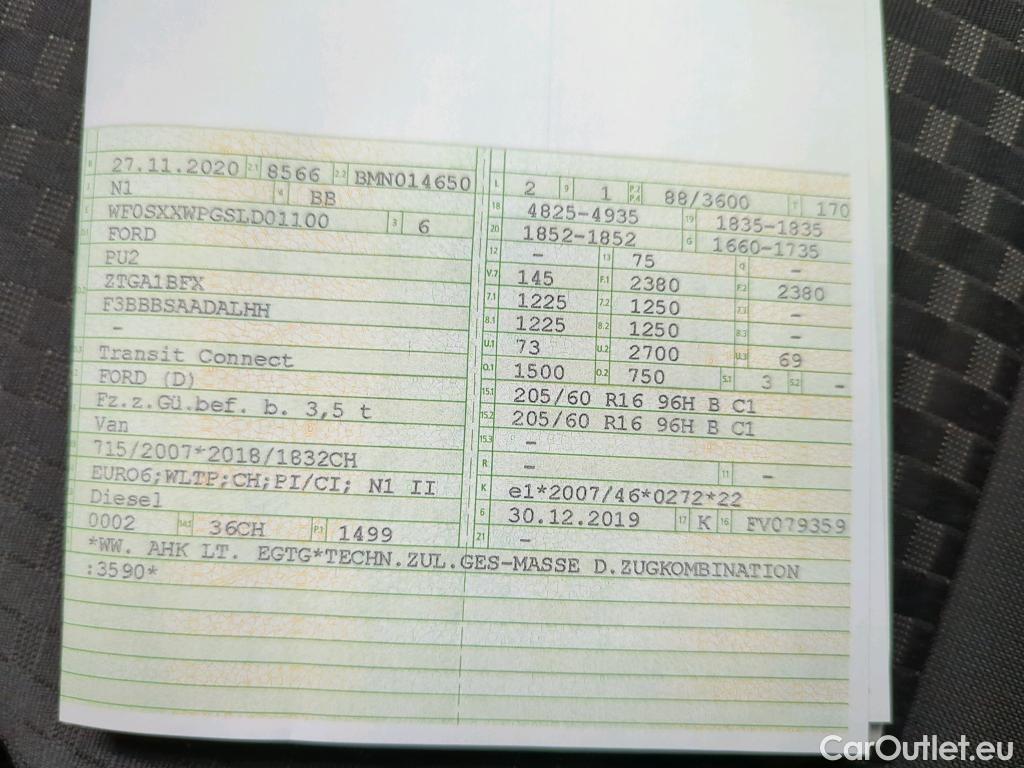 B 27.11.2020 2.1 8566 2.2 BMN014650
J N1 4 BB
E WF0SXXWPGSLD01100 3 6
D.1 FORD
PU2
D.2 ZTGA1BFX
F3BBBSAADALHH
-
D.3 Transit Connect
FORD (D)
Fz.z.Gü.bef. b. 3,5 t
Van
715/2007*2018/1832CH
EURO6;WLTP;CH;PI/CI; N1 II
Diesel
0002 14.1 36CH P.1 1499
L 2 9 1 P.2 P.4 88/3600 T 170
18 4825-4935 19 1835-1835
20 1852-1852 G 1660-1735
12 - 13 75 Q -
V.7 145 F.1 2380 F.2 2380
7.1 1225 7.2 1250 7.3 -
8.1 1225 8.2 1250 8.3 -
U.1 73 U.2 2700 U.3 69
O.1 1500 O.2 750 S.1 3 S.2 -
15.1 205/60 R16 96H B C1
15.2 205/60 R16 96H B C1
15.3 -
R - 11 -
K e1*2007/46*0272*22
6 30.12.2019 17 K 16 FV079359
21 -
*WW. AHK LT. EGTG*TECHN.ZUL.GES-MASSE D.ZUGKOMBINATION
:3590*
CarOutlet.eu